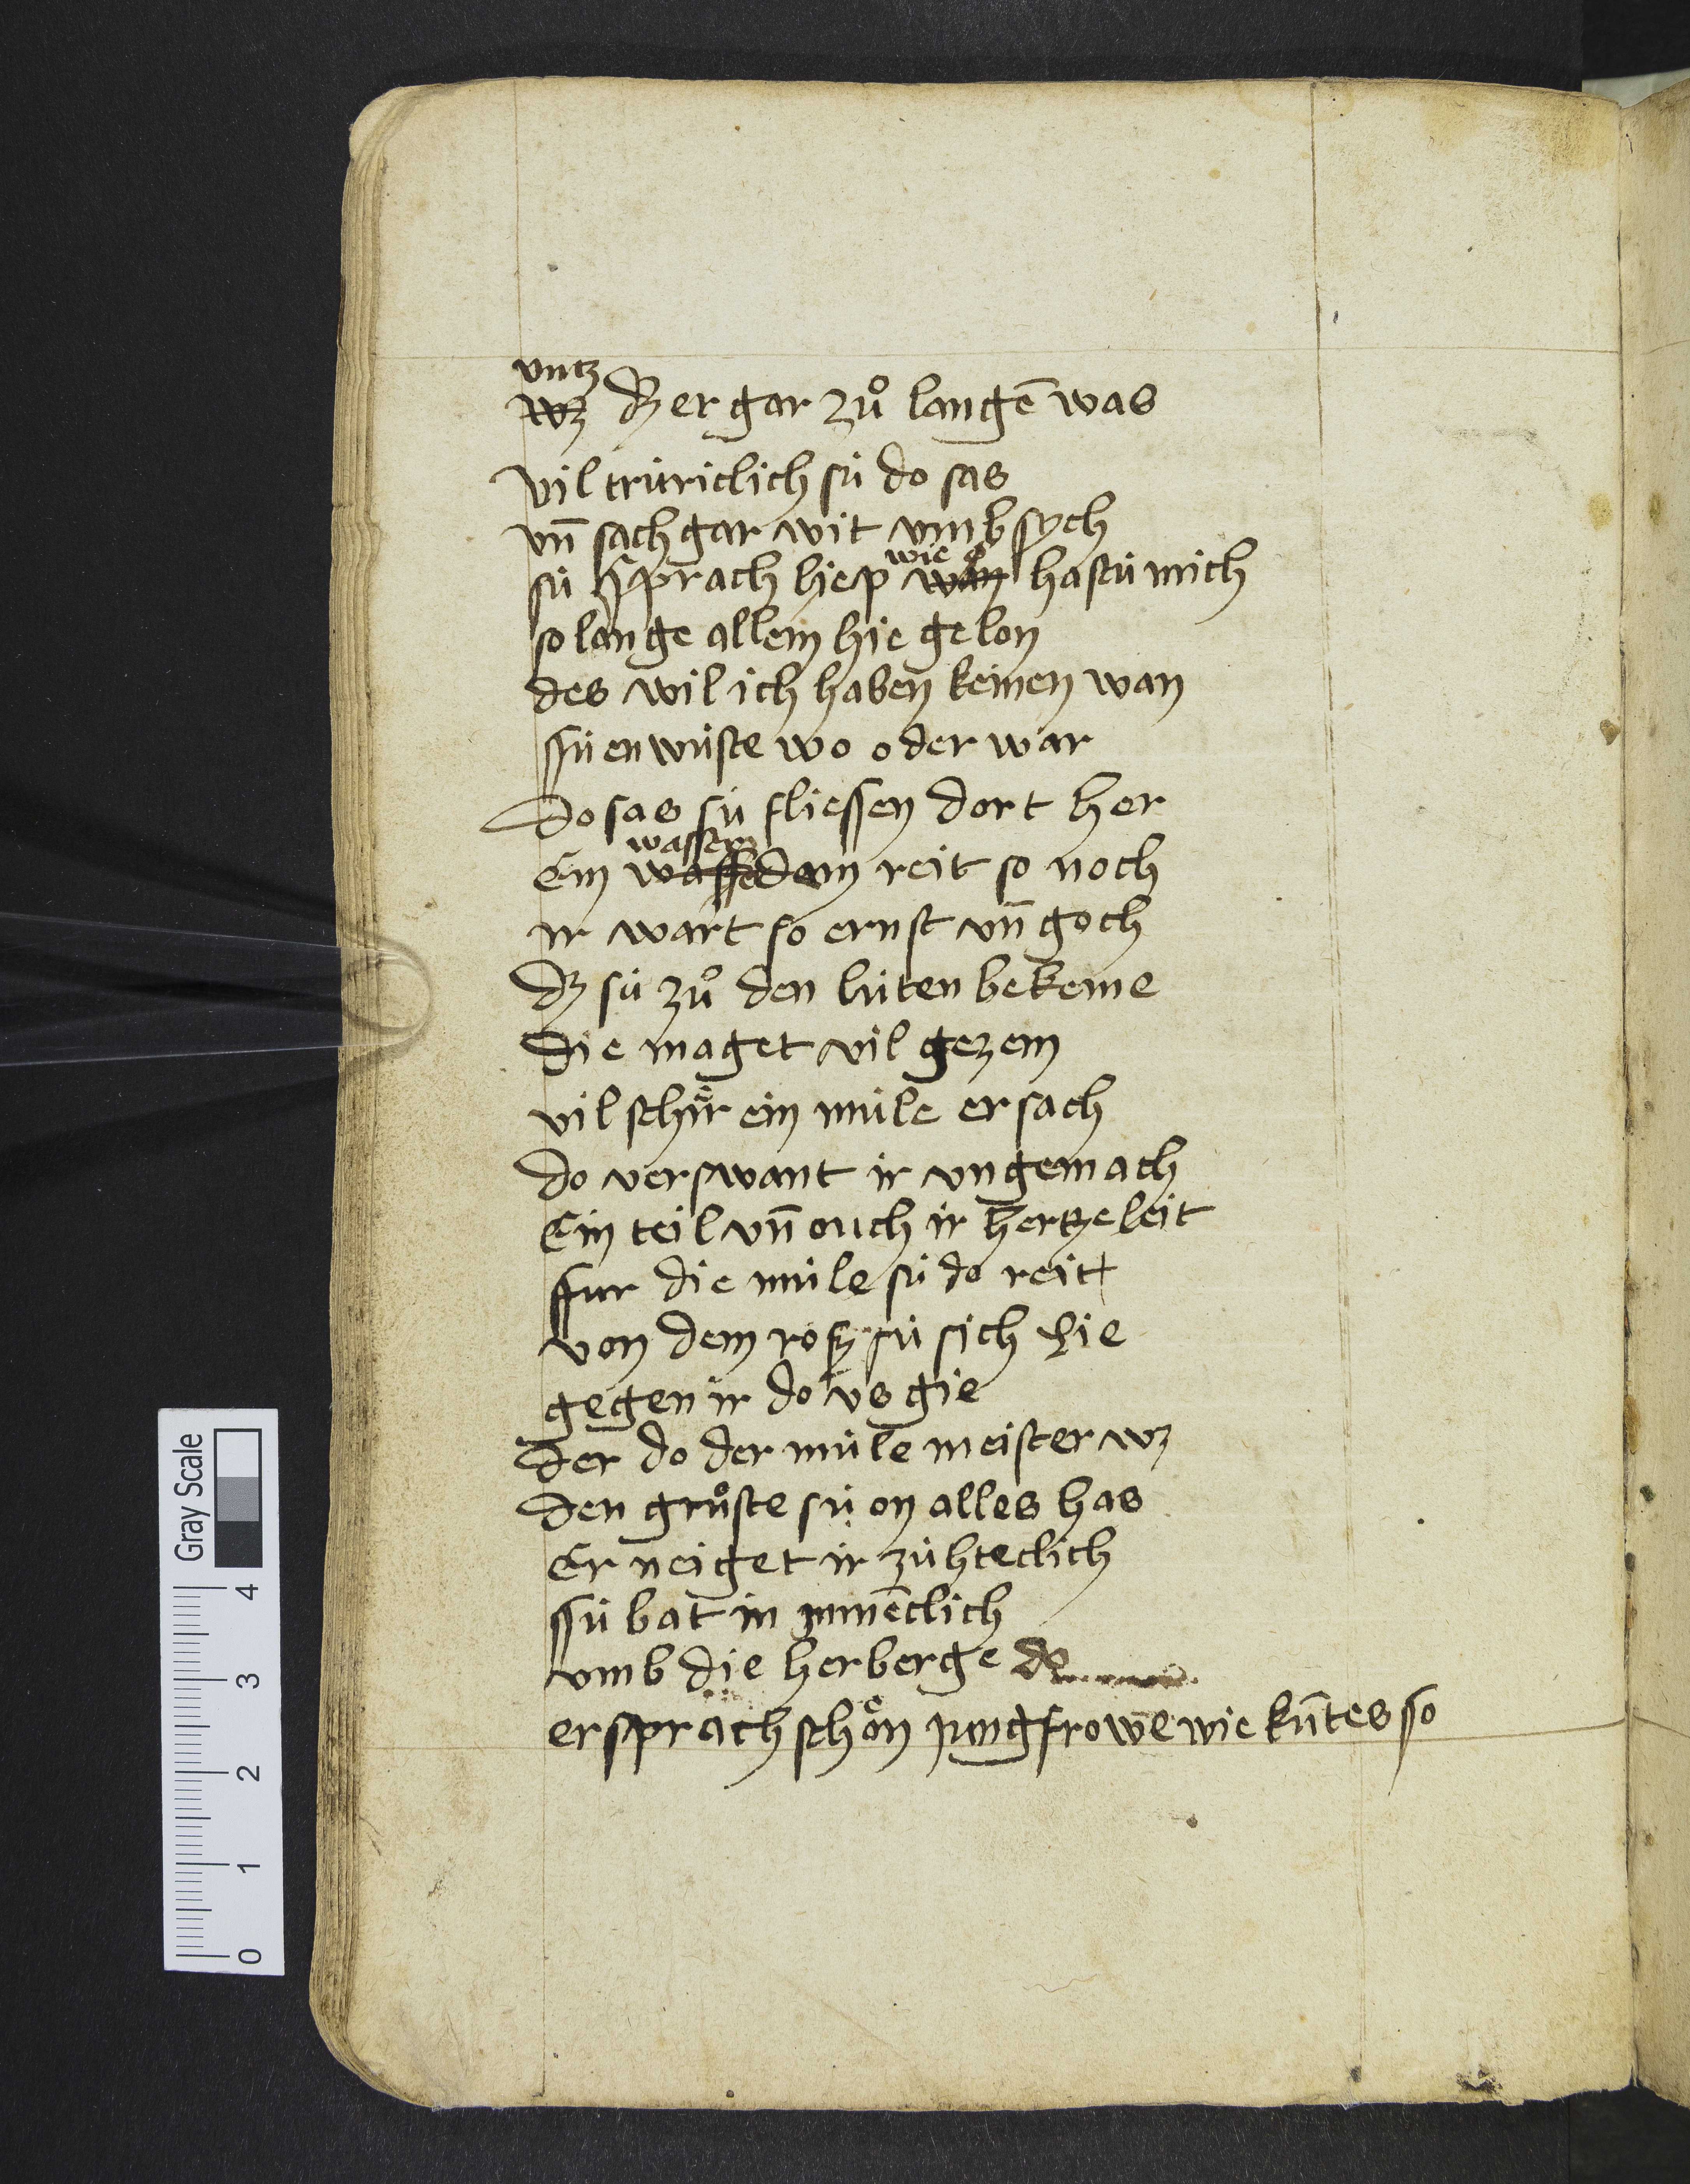 vntz
wz dz er gar zuͦ langē was
vil trúriclich sú do sas
vn̄ sach gar wit vmb sych
wie
sú sprach liep wan hastu mich
so lange allein hie gelon
des wil ich haben keinen wan
ssú en wuste wo oder war
do sas sú fliessen dort her
wasser
Ein wasse dam reit so noch
ir wart so ernst vn̄ goch
dz sú zuͦ den lúten bekeme
die maget vil gezem
vil schir ein múle ersach
do verswant ir vngemach
Ein teil vn̄ ouch ir hertzeleit
ffur die múle sú do reit
von dem rosz sú sich lie
gegen ir do vs gie
der do der múle meister wz
den gruͦste sú on alles has
Er neiget ir zúhteclich
ssú bat in minēclich
vmb die herberge do
er sprach schoͤn jungfrowe wie kūtes so
Gray Scale
4
3
2
1
0